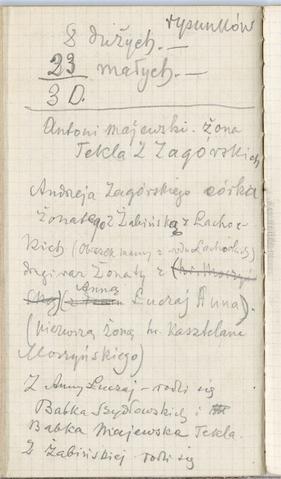 rysunków
8 dużych. —
23 małych. —
3 D.
Antoni Majewski. żona
Tekla z Zagórskich
Andrzeja Zagórskiego córka
żonatego z Żabińską z Lachoc-
kich (Obrazek mamy z rodu Lachockich)
drugi raz żonaty z
Anną
Lucraj Anna).
(pierwszą żoną hr. Kasztelana
Moszyńskiego)
Z Anny Lucraj — rodzi się
Babka Szydłowskich i
Babka Majewska Tekla.
Z Żabińskiej rodzi się